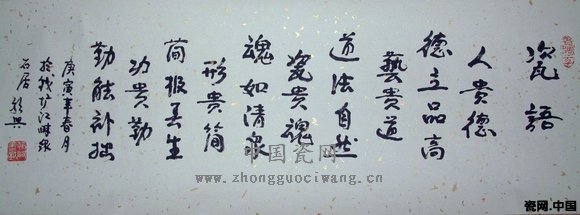 瓷語
人貴德
德立品高
藝貴道
道法自然
瓷貴魂
魂如清泉
形貴简
简生
功貴勤
勤能补拙
庚寅年春月
於江畔
石居
中国瓷网
www.zhongguociwang.cn
瓷网.中国